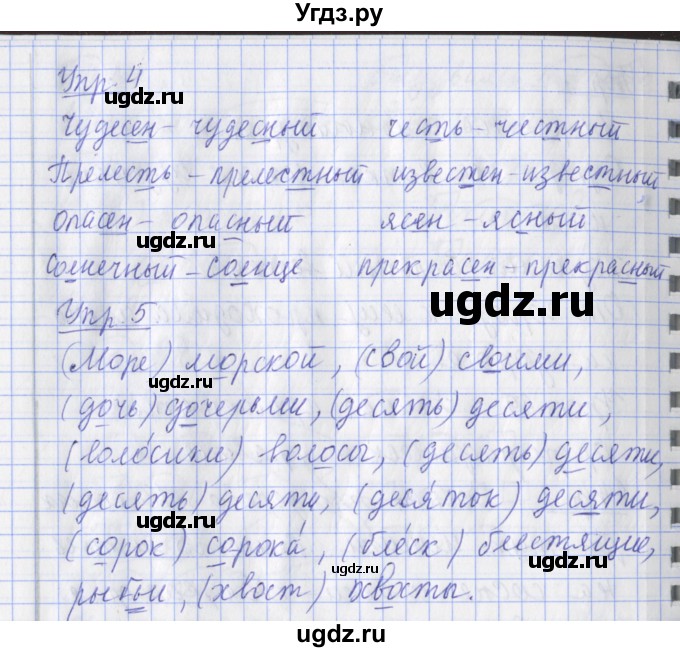 Угдз.ру
Упр. 4
ugdz.ru
Чудесен - чудесный честь - честный
Прелесть - прелестный известен - известный
ugdz.ru
опасен - опасный ясен - ясный
ugdz.ru
Солнечный - солнце прекрасен - прекрасный
ugdz.ru
Упр. 5
ugdz.ru
(Море) морской, (свой) своими,
ugdz.ru
(дочь) дочерьми, (десять) десяти,
(воло́сики) волосы, (десять) десяти,
(десять) десяти, (деся́ток) десяти,
ugdz.ru
(сорок) сорока́, (бле́ск) блестящие,
ugdz.ru
рыбьи, (хвост) хвосты.
ugdz.ru
ugdz.ru